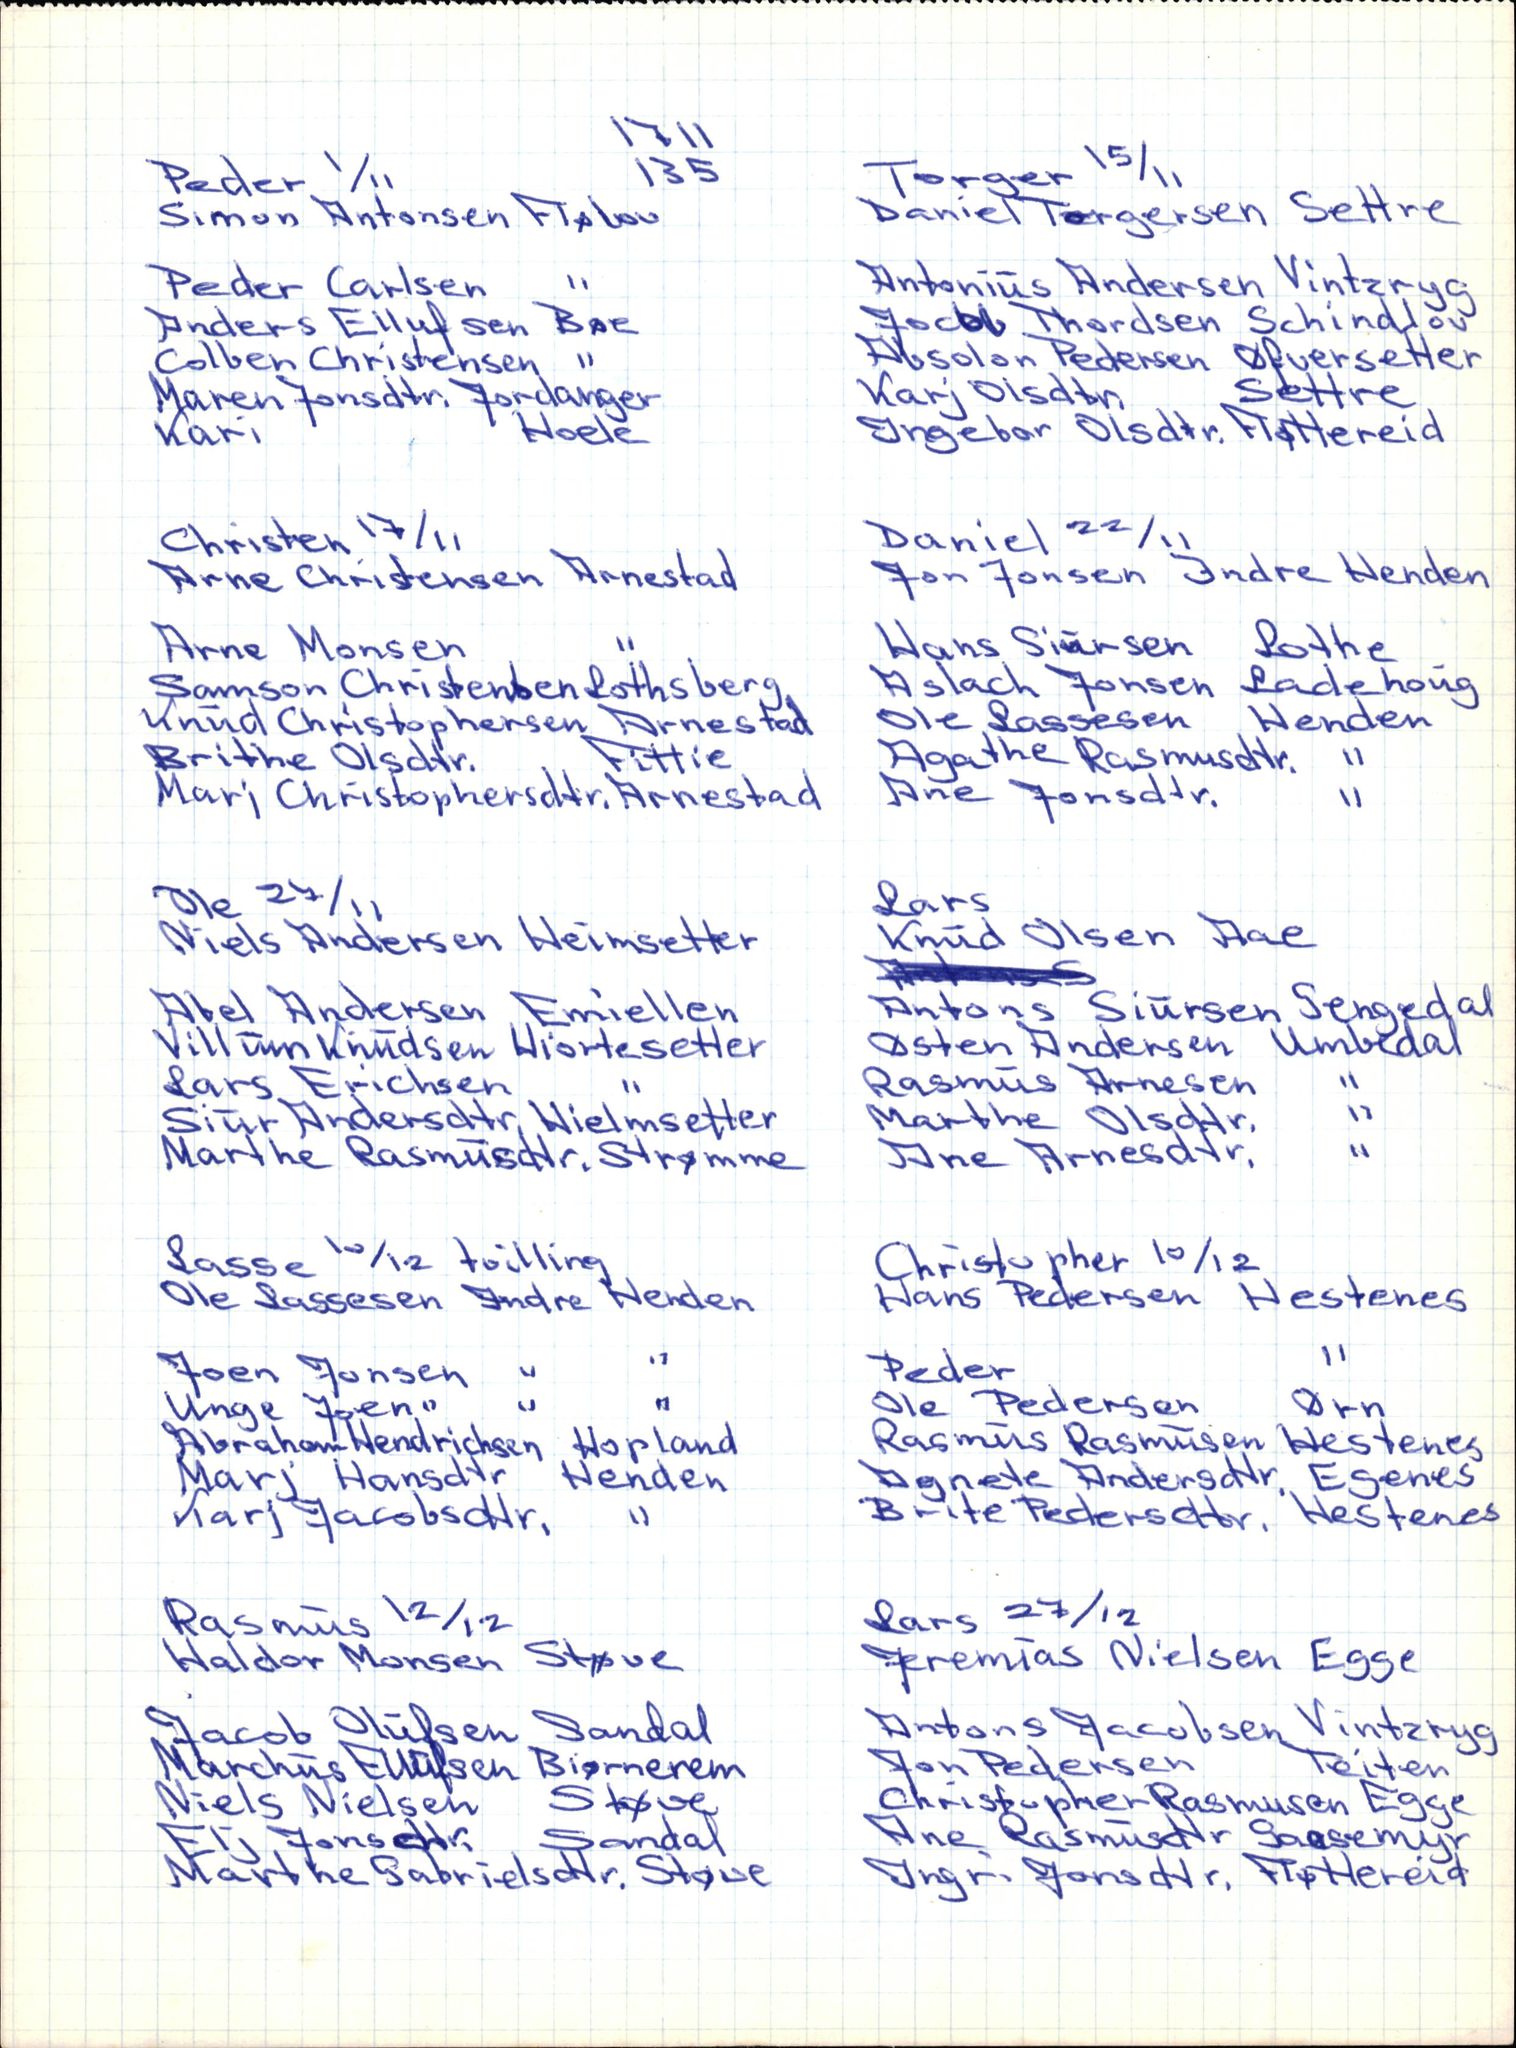 1711
135
Peder 1/11
Simon Antonsen Fløtou
Peder Carlsen "
Anders Ellufsen Bøe
Colben Christensen "
Maren Jonsdtr. Jordanger
Kari Hoele
Torger 15/11
Daniel Torgersen Settre
Antoniūs Andersen Vintzryg
Jocob Thordsen Schindlou
Absolon Pedersen Øfversetter
Karj Olsdtr. Settre
Ingebor Olsdtr. Fløttereid
Christen 17/11
Arne Christensen Arnestad
Arne Monsen "
Samson Christensen Lothsberg
Knūd Christophersen Arnestad
Brithe Olsdtr. Fittie
Marj Christophersdtr. Arnestad
Daniel 22/11
Jon Jonsen Indre Henden
Hans Siūrsen Lothe
Aslach Jonsen Ladehoūg
Ole Lassesen Henden
Agathe Rasmusdtr. "
Ane Jonsdtr. "
Ole 27/11
Niels Andersen Heimsetter
Abel Andersen Emiellen
Villūm Knūdsen Hiortesetter
Lars Erichsen "
Siūr Andersdtr. Hielmsetter
Marthe Rasmūsdtr. Strømme
Lars
Knūd Olsen Aae
Antons Siūrsen Sengedal
Østen Andersen Umbedal
Rasmūs Arnesen "
Marthe Olsdtr. "
Ane Arnesdtr. "
Lasse 10/12 tvilling
Ole Lassesen Indre Henden
Joen Jonsen " "
Unge Joen " " "
Abraham Hendrichsen Hopland
Marj Hansdtr Henden
Karj Jacobsdtr. "
Christopher 10/12
Hans Pedersen Hestenes
Peder "
Ole Pedersen Ørn
Rasmūs Rasmūsen Hestenes
Agnete Andersdtr. Egenes
Brite Pedersdtr. Hestenes
Rasmūs 12/12
Haldor Monsen Støve
Jacob Olūfsen Sandal
Marchūs Ellūfsen Biørnerem
Niels Nielsen Støve
Elj Jonsdtr. Sandal
Marthe Gabrielsdtr. Støve
Lars 27/12
Jeremias Nielsen Egge
Antons Jacobsen Vintzryg
Jon Pedersen Teiten
Christopher Rasmusen Egge
Ane Rasmūsdtr Gaasemyr
Ingri Jonsdtr. Fløttereid